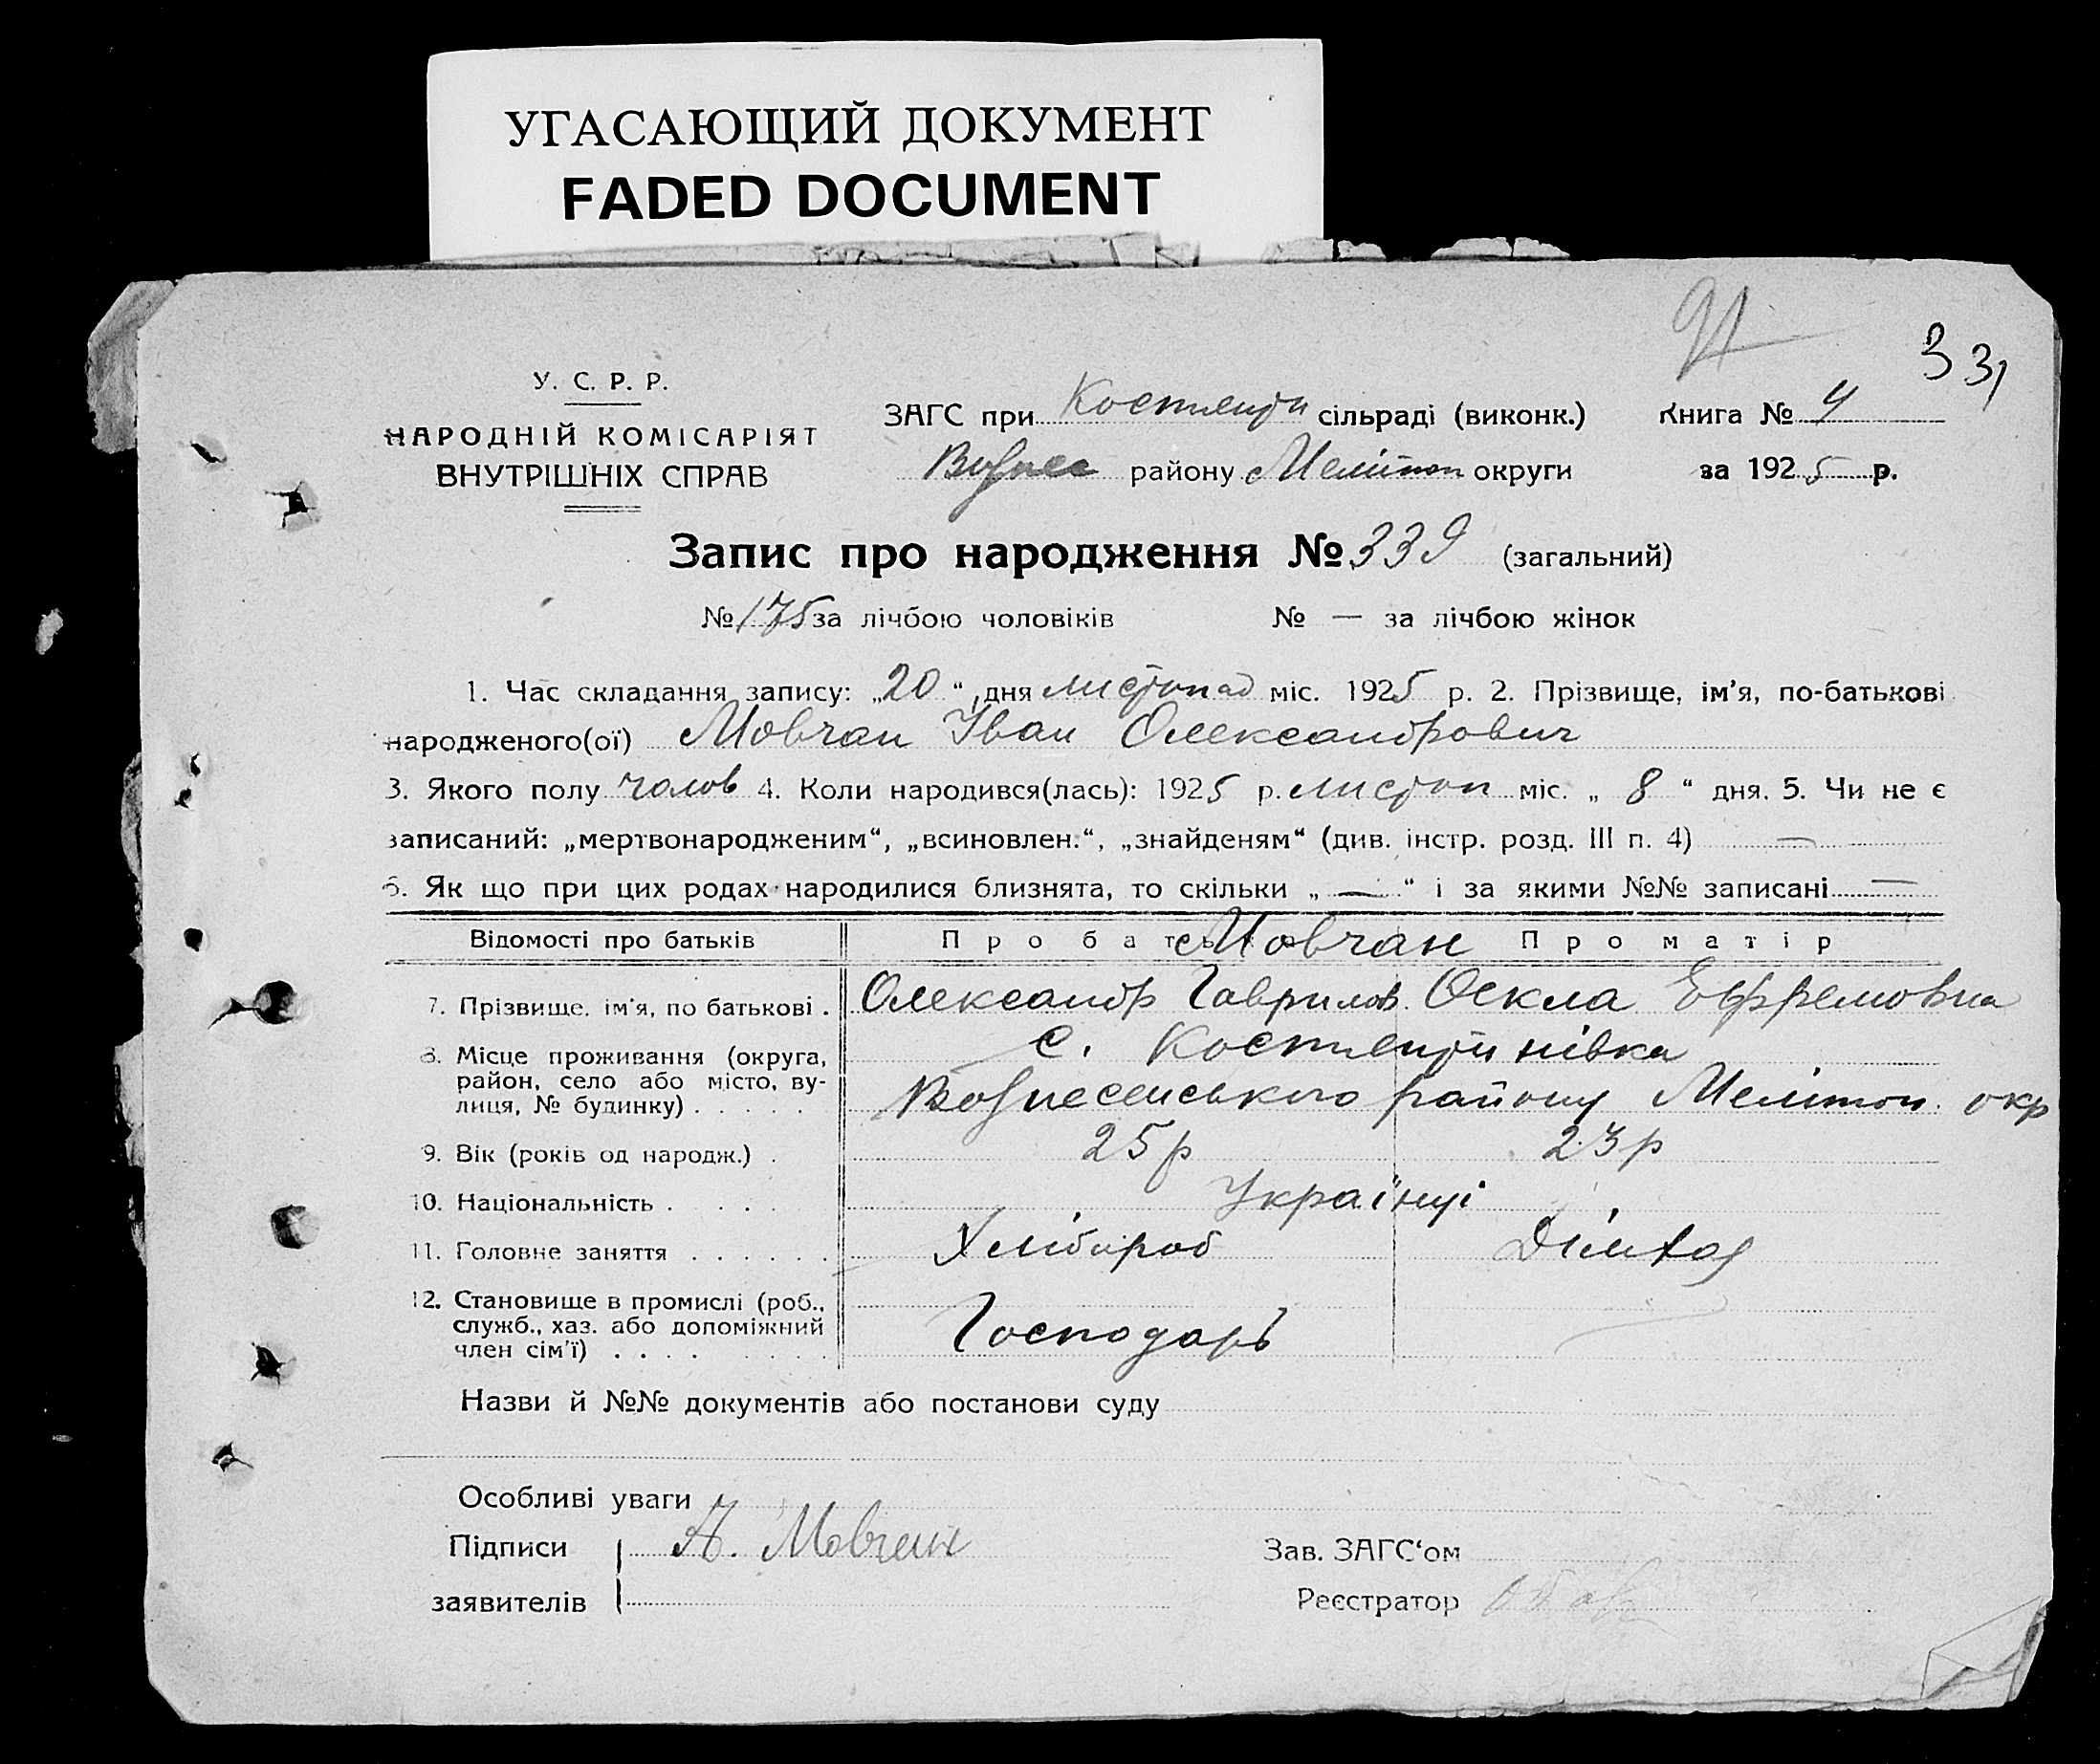 УГАСАЮЩИЙ ДОКУМЕНТ
FADED DOCUMENT
91
331
У. С. Р. Р.
НАРОДНІЙ КОМІСАРІЯТ
ВНУТРІШНІХ СПРАВ
ЗАГС при Костянти сільраді (виконк.)
Книга № 4
Вознес району Меліт­оп округи
за 1925 р.
Запис про народження № 339 (загальний)
№ 175 за лічбою чоловіків № — за лічбою жінок
1. Час складання запису: „20“ дня листопад міс. 1925 р. 2. Прізвище, ім’я, по-батькові
народженого(ої) Мовчан Іван Олександрович
3. Якого полу чолов 4. Коли народився(лась): 1925 р. листоп міс. „ 8 “ дня. 5. Чи не є
записаний: „мертвонародженим“, „всиновлен.“, „знайденям“ (див. інстр. розд. III п. 4) —
6. Як що при цих родах народилися близнята, то скільки „ — “ і за якими №№ записані —
Відомості про батьків Про бать Мовчан Про матір
7. Прізвище, ім’я, по батькові . Олександр Гаврилов. Оскла Ефремовна
8. Місце проживання (округа, с. Костянтинівка
район, село або місто, ву-
лиця, № будинку) . . . . . Вознесенського району Мелітоп. окр
9. Вік (років од народж.) . 25 р 23 р
10. Національність . . . . Українці
11. Головне заняття . . . . . . Хлібороб Дімхоз
12. Становище в промислі (роб.,
служб., хаз. або допоміжний Господарь
член сім’ї) . . . .
Назви й №№ документів або постанови суду
Особливі уваги
Підписи А. Мовчан Зав. ЗАГС‘ом
заявителів Реєстратор